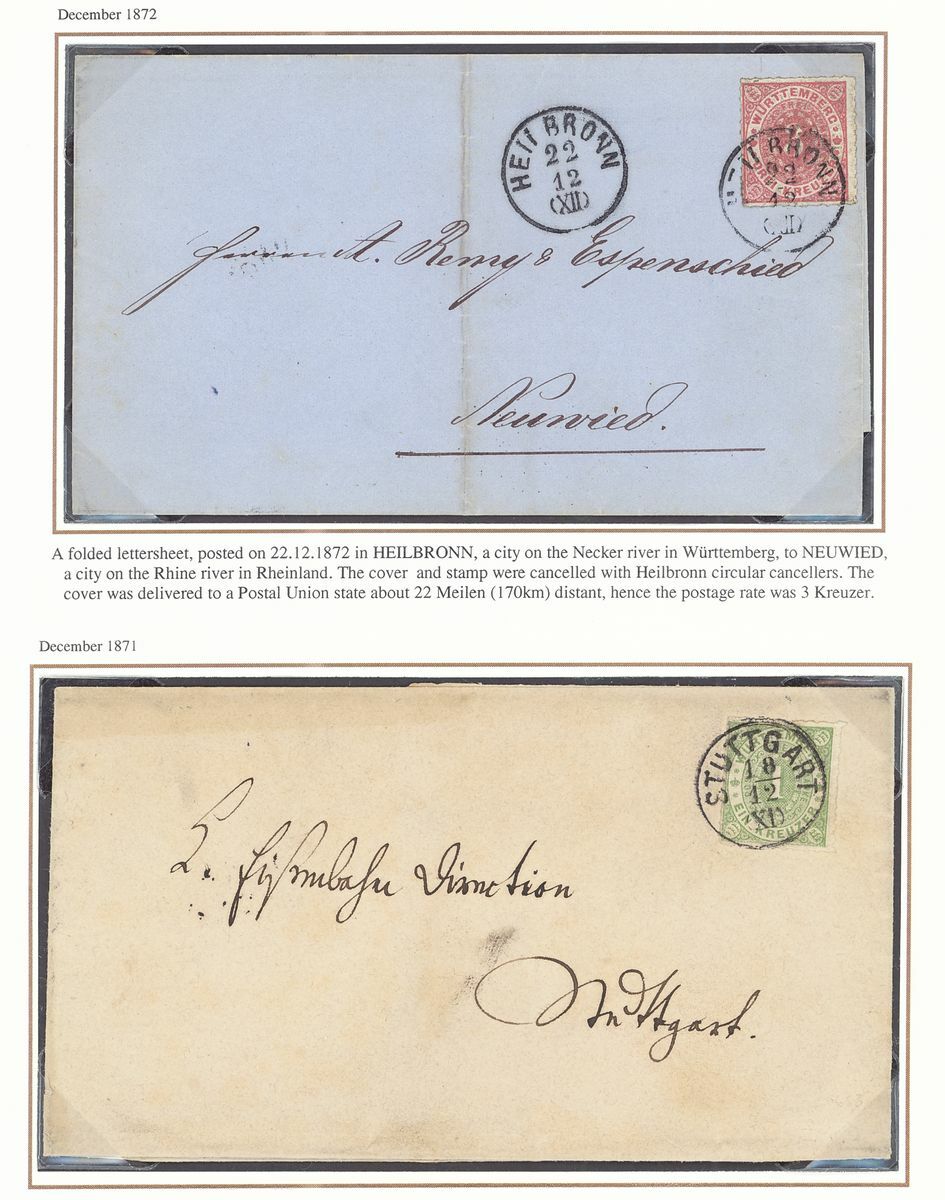 December 1872
WÜRTTEMBERG
FREI
DREI KREUZ
HEILBRONN
22
12
(XII)
BRONN
22
12
Herren A. Remy & Espenschied
Neuwied.
A folded lettersheet, posted on 22.12.1872 in HEILBRONN, a city on the Necker river in Württemberg, to NEUWIED,
a city on the Rhine river in Rheinland. The cover and stamp were cancelled with Heilbronn circular cancellers. The
cover was delivered to a Postal Union state about 22 Meilen (170km) distant, hence the postage rate was 3 Kreuzer.
December 1871
STUTTGART
18
12
XI)
1
EIN KREUZER
K. Eisenbahn Direction
Stuttgart.